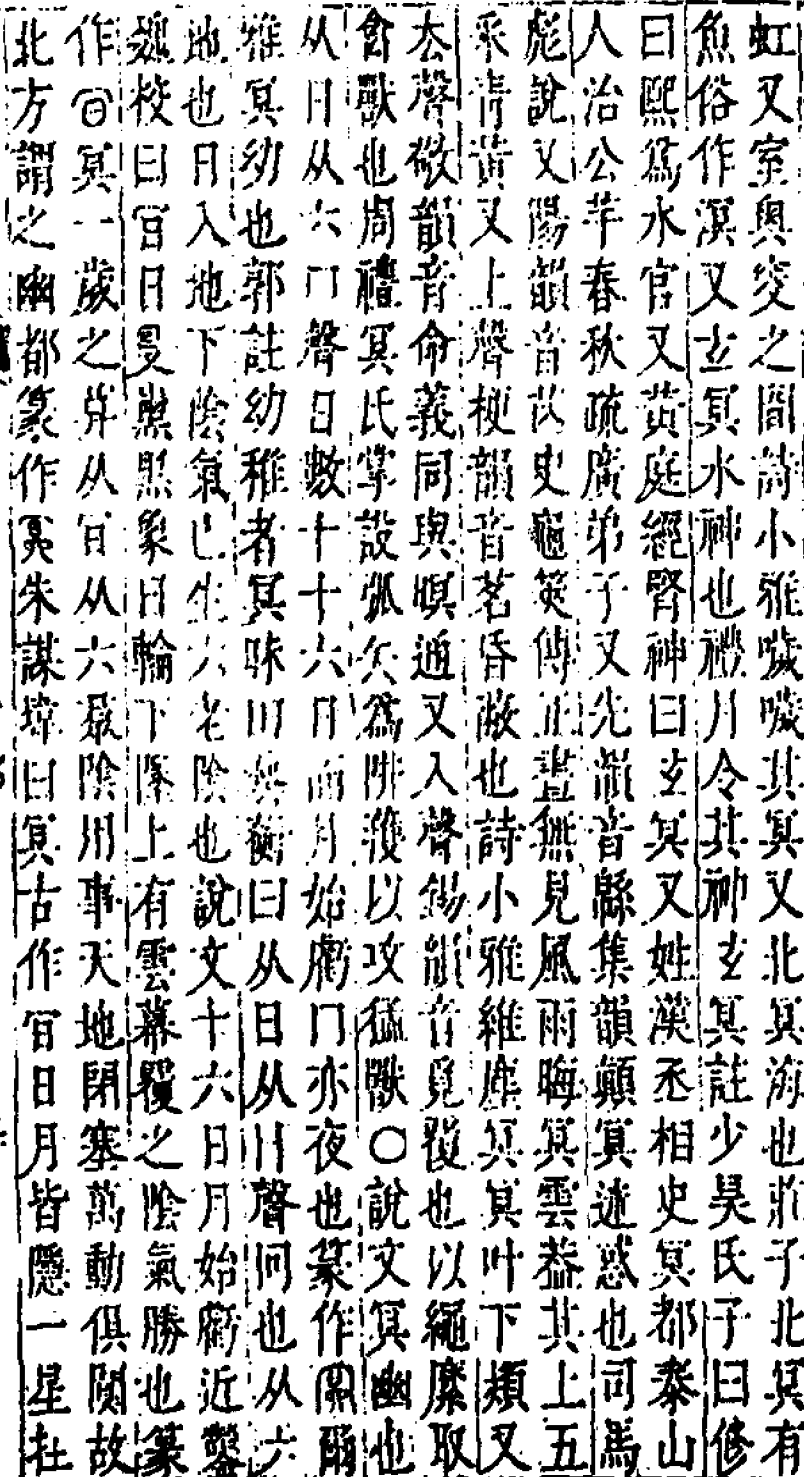 虹又室奧窔之間詩小雅噦噦其冥又北冥海也莊子北冥有
魚俗作溟又玄冥水神也禮月令其神玄冥註少昊氏子曰修
曰熙爲水官又黃庭經腎神曰玄冥又姓漢丞相史冥都泰山
人治公羊春秋疏廣弟子又先韻音緜集韻顛冥迷惑也司馬
彪說又陽韻音芒史龜筴傳正晝無見風雨晦冥雲蓋其上五
采青黃又上聲梗韻音茗昏蔽也詩小雅維塵冥冥叶下熲又
去聲敬韻音命義同與暝通又入聲錫韻音覓覆也以繩縻取
禽獸也周禮冥氏掌設弧矢爲阱擭以攻猛獸○說文冥幽也
从日从六冂聲日數十十六日而月始虧冂亦夜也篆作𠕤爾
雅冥幼也郭註幼稚者冥昧 曰从日从 聲同也从六
地也日入地下陰氣已生六老陰也說文十六日月始虧近鑿
魏校曰冥日旻 象日輪下降上有雲幕覆之陰氣勝也篆
作冥一歲之 从冥从六 陰用事天地閉塞萬動俱閴故
北方謂之幽都篆作冥朱謀㙔曰冥古作冥日月皆隱一星在